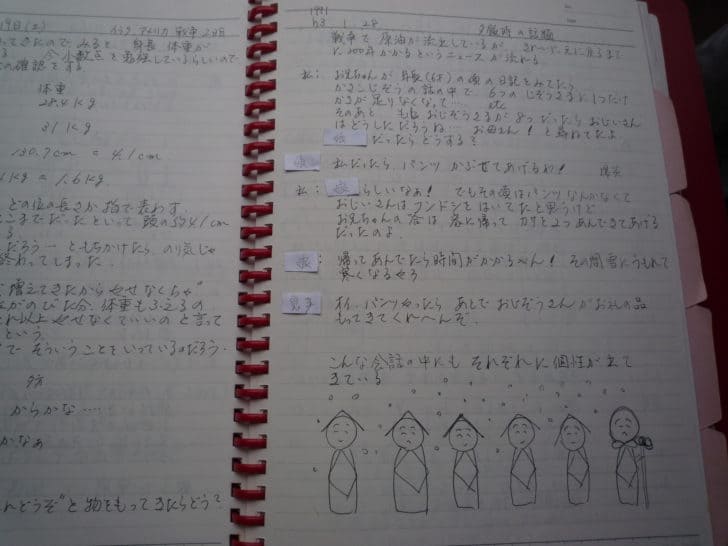 19日(土) イラク アメリカ 戦争 2日目
ってきたので みると、身長 体重が
今 小数点を勉強しているらしいので
の確認をする
体重
28.4 kg
31 kg
130.7cm = 4.1cm
kg = 1.6kg
どの位の長さか 指で表わす。
こまでだったといって 頭の
だろう― ともちかけたら のり気じゃ
終わってしまった。
増えてきたから やせなくちゃ"
がのびた分、体重もふえるの
れ以上 やせなくていいの と言って
という。
で そういうことをいっているのだろう。
からかな……
かなぁ
んどうぞ"と 物をもってきたらどう?
1991
H3. 1. 28
夕飯時の話題
戦争で 原油が流出しているが 元に戻るまで
200年かかるというニュースが流れる
私: お兄ちゃんが 年長(6才)の頃の日記をみてたら
かさこじぞうの話の中で 6つのじぞうさまに1つだけ
かさが足りなくなって…… etc
そのあと もし おじぞうさまが 8つだったら おじいさん
はどうしただろうね… お母さん! と尋ねてたよ
だったらどうする?
私だったら パンツ かぶせてあげるわ! 爆笑
私: らしいなぁ! でもその頃はパンツなんかなくて
おじいさんは フンドシをはいてたと思うけど
お兄ちゃんの答は 家に帰って カサを2つあんできてあげる
だったのよ.
帰ってあんでたら時間がかかるやん! その間雪にうもれて
冥くなるやろ
息子 オイ、パンツやったら あとで おじぞうさんがお礼の品
もってきてくれへんぞ.
こんな会話の中にも それぞれに個性が出て
きている